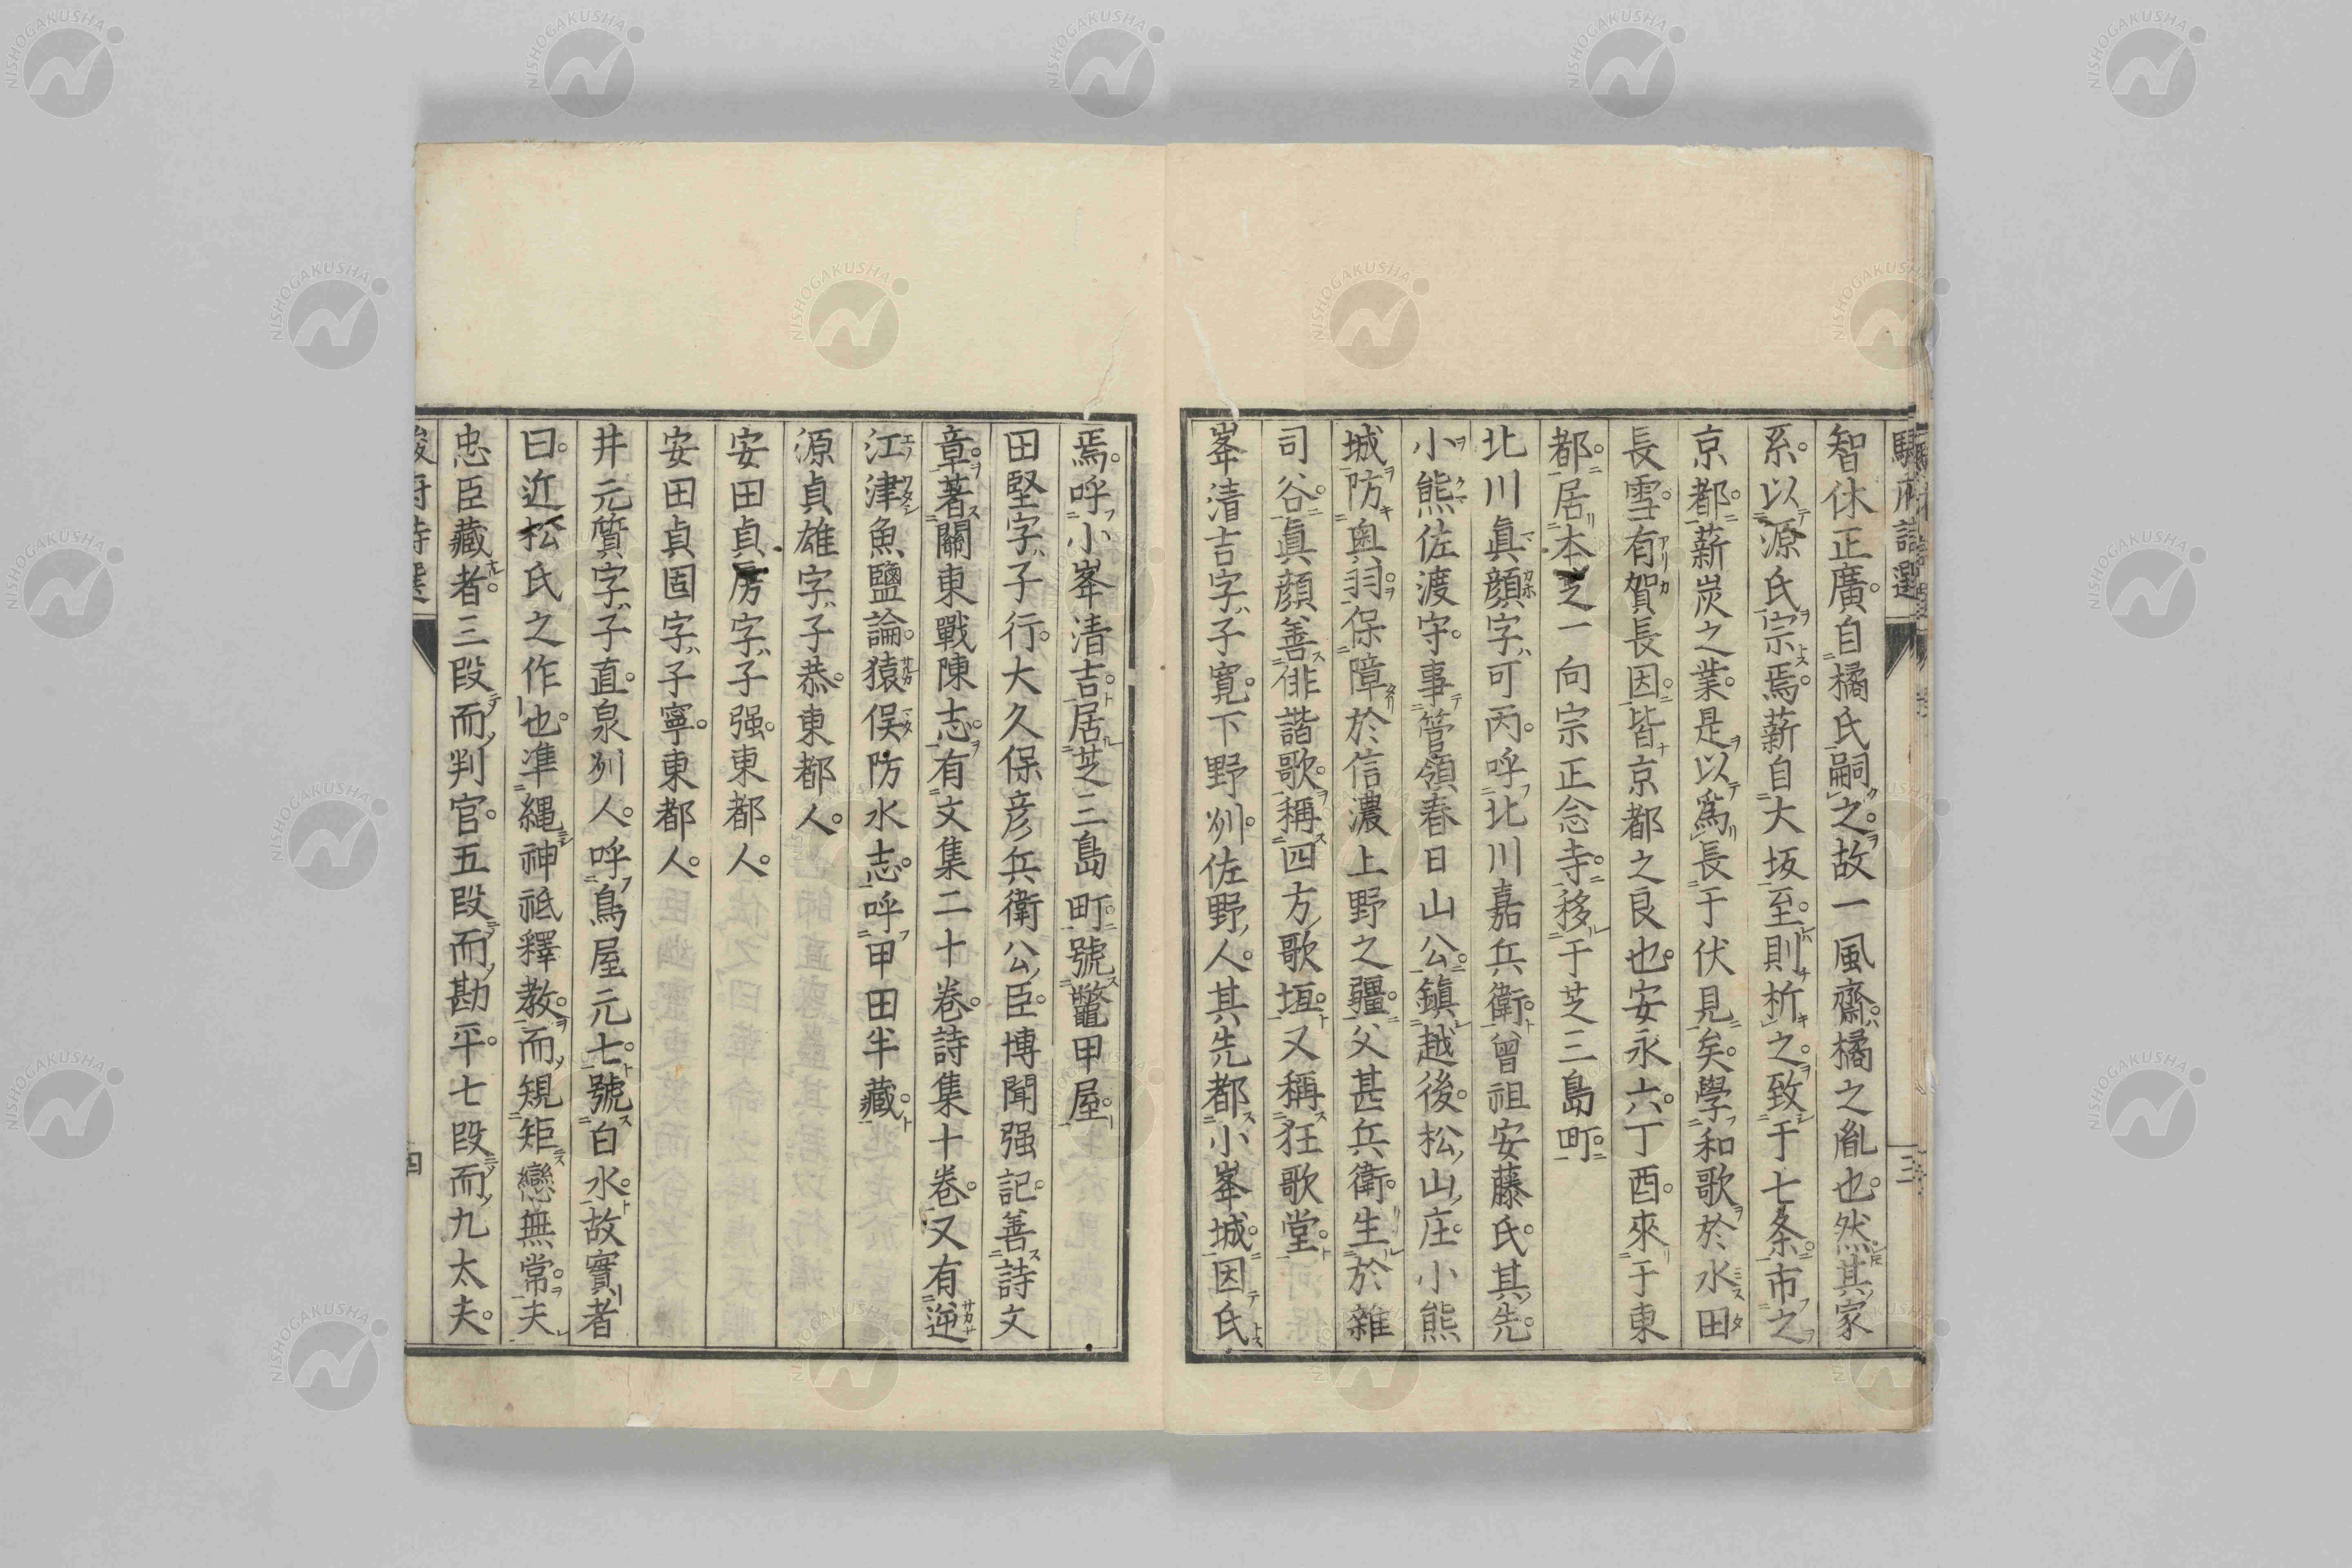 智休正廣。自橘氏嗣之。故一風齋。橘之胤也。然其家
系。以源氏宗焉。薪自大坂至。則析之。致于七条。市之
京都。薪炭之業。是以爲長于伏見矣。學和歌於水田
長雪。有賀長因。皆京都之良也。安永六。丁酉。來于東
都。居本芝一向宗正念寺。移于芝三島町。
北川眞顔字可丙。呼北川嘉兵衛。曾祖安藤氏。其先。
小熊佐渡守。事管領春日山公。鎭越後。松山庄。小熊
城防奥羽。保障於信濃上野之疆。父甚兵衛。生於雜
司谷。眞顔善俳諧歌。稱四方歌垣。又稱狂歌堂。
峯清吉字子寛。下野州。佐野人。其先都小峯城。因氏
焉。呼小峯清吉。居芝三島町。號鼈甲屋。
田堅字子行。大久保彦兵衛公臣。博聞强記。善詩文
章。著關東戰陳志。有文集二十卷。詩集十卷。又有逆
江津魚鹽論。猿俣防水志。呼甲田半藏。
源貞雄字子恭。東都人。
安田貞房字子强。東都人。
安田貞固字子寧。東都人。
井元質字子直。泉州人。呼鳥屋元七。號白水。故實者
曰。近松氏之作也。準縄神祇釋教。而規矩戀無常。夫
忠臣藏者。三段而判官。五段而勘平。七段而九太夫。
四